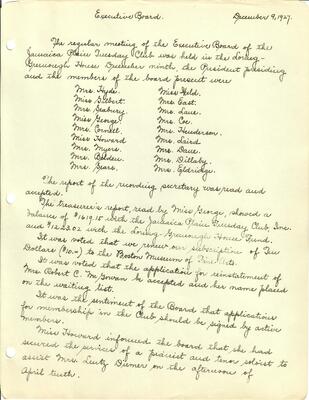 Executive Board. December 9, 1927.
The regular meeting of the Executive Board of the
Jamaica Plain Tuesday Club was held in the Loring-
Greenough House December ninth, the President presiding
and the members of the board present were
Mrs. Hyde. Miss Held.
Miss Gilbert. Mrs. East.
Mrs. Seabury. Mrs. Lane.
Miss George Mrs. Coe.
Mrs. Cornell. Mrs. Henderson.
Miss Howard Mrs. Laird
Mrs. Myers. Mrs. Dane.
Mrs. Belden. Mrs. Dillaby.
Mrs. Sears. Mrs. Eldridge.
The report of the recording secretary was read and
accepted.
The treasurer's report, read by Miss George, showed a
balance of $1619.15 with the Jamaica Plain Tuesday Club, Inc.
and $1223.02 with the Loring-Greenough House Fund.
It was voted that we renew our subscription of Ten
Dollars (10.-) to the Boston Museum of Fine Arts.
It was voted that the application for reinstatement of
Mrs. Robert C. McGowan be accepted and her name placed
on the waiting list.
It was the sentiment of the Board that applications
for membership in the Club should be signed by active
members.
Miss Howard informed the board that she had
secured the services of a pianist and tenor soloist to
assist Mrs. Lutz Diemer on the afternoon of
April tenth.